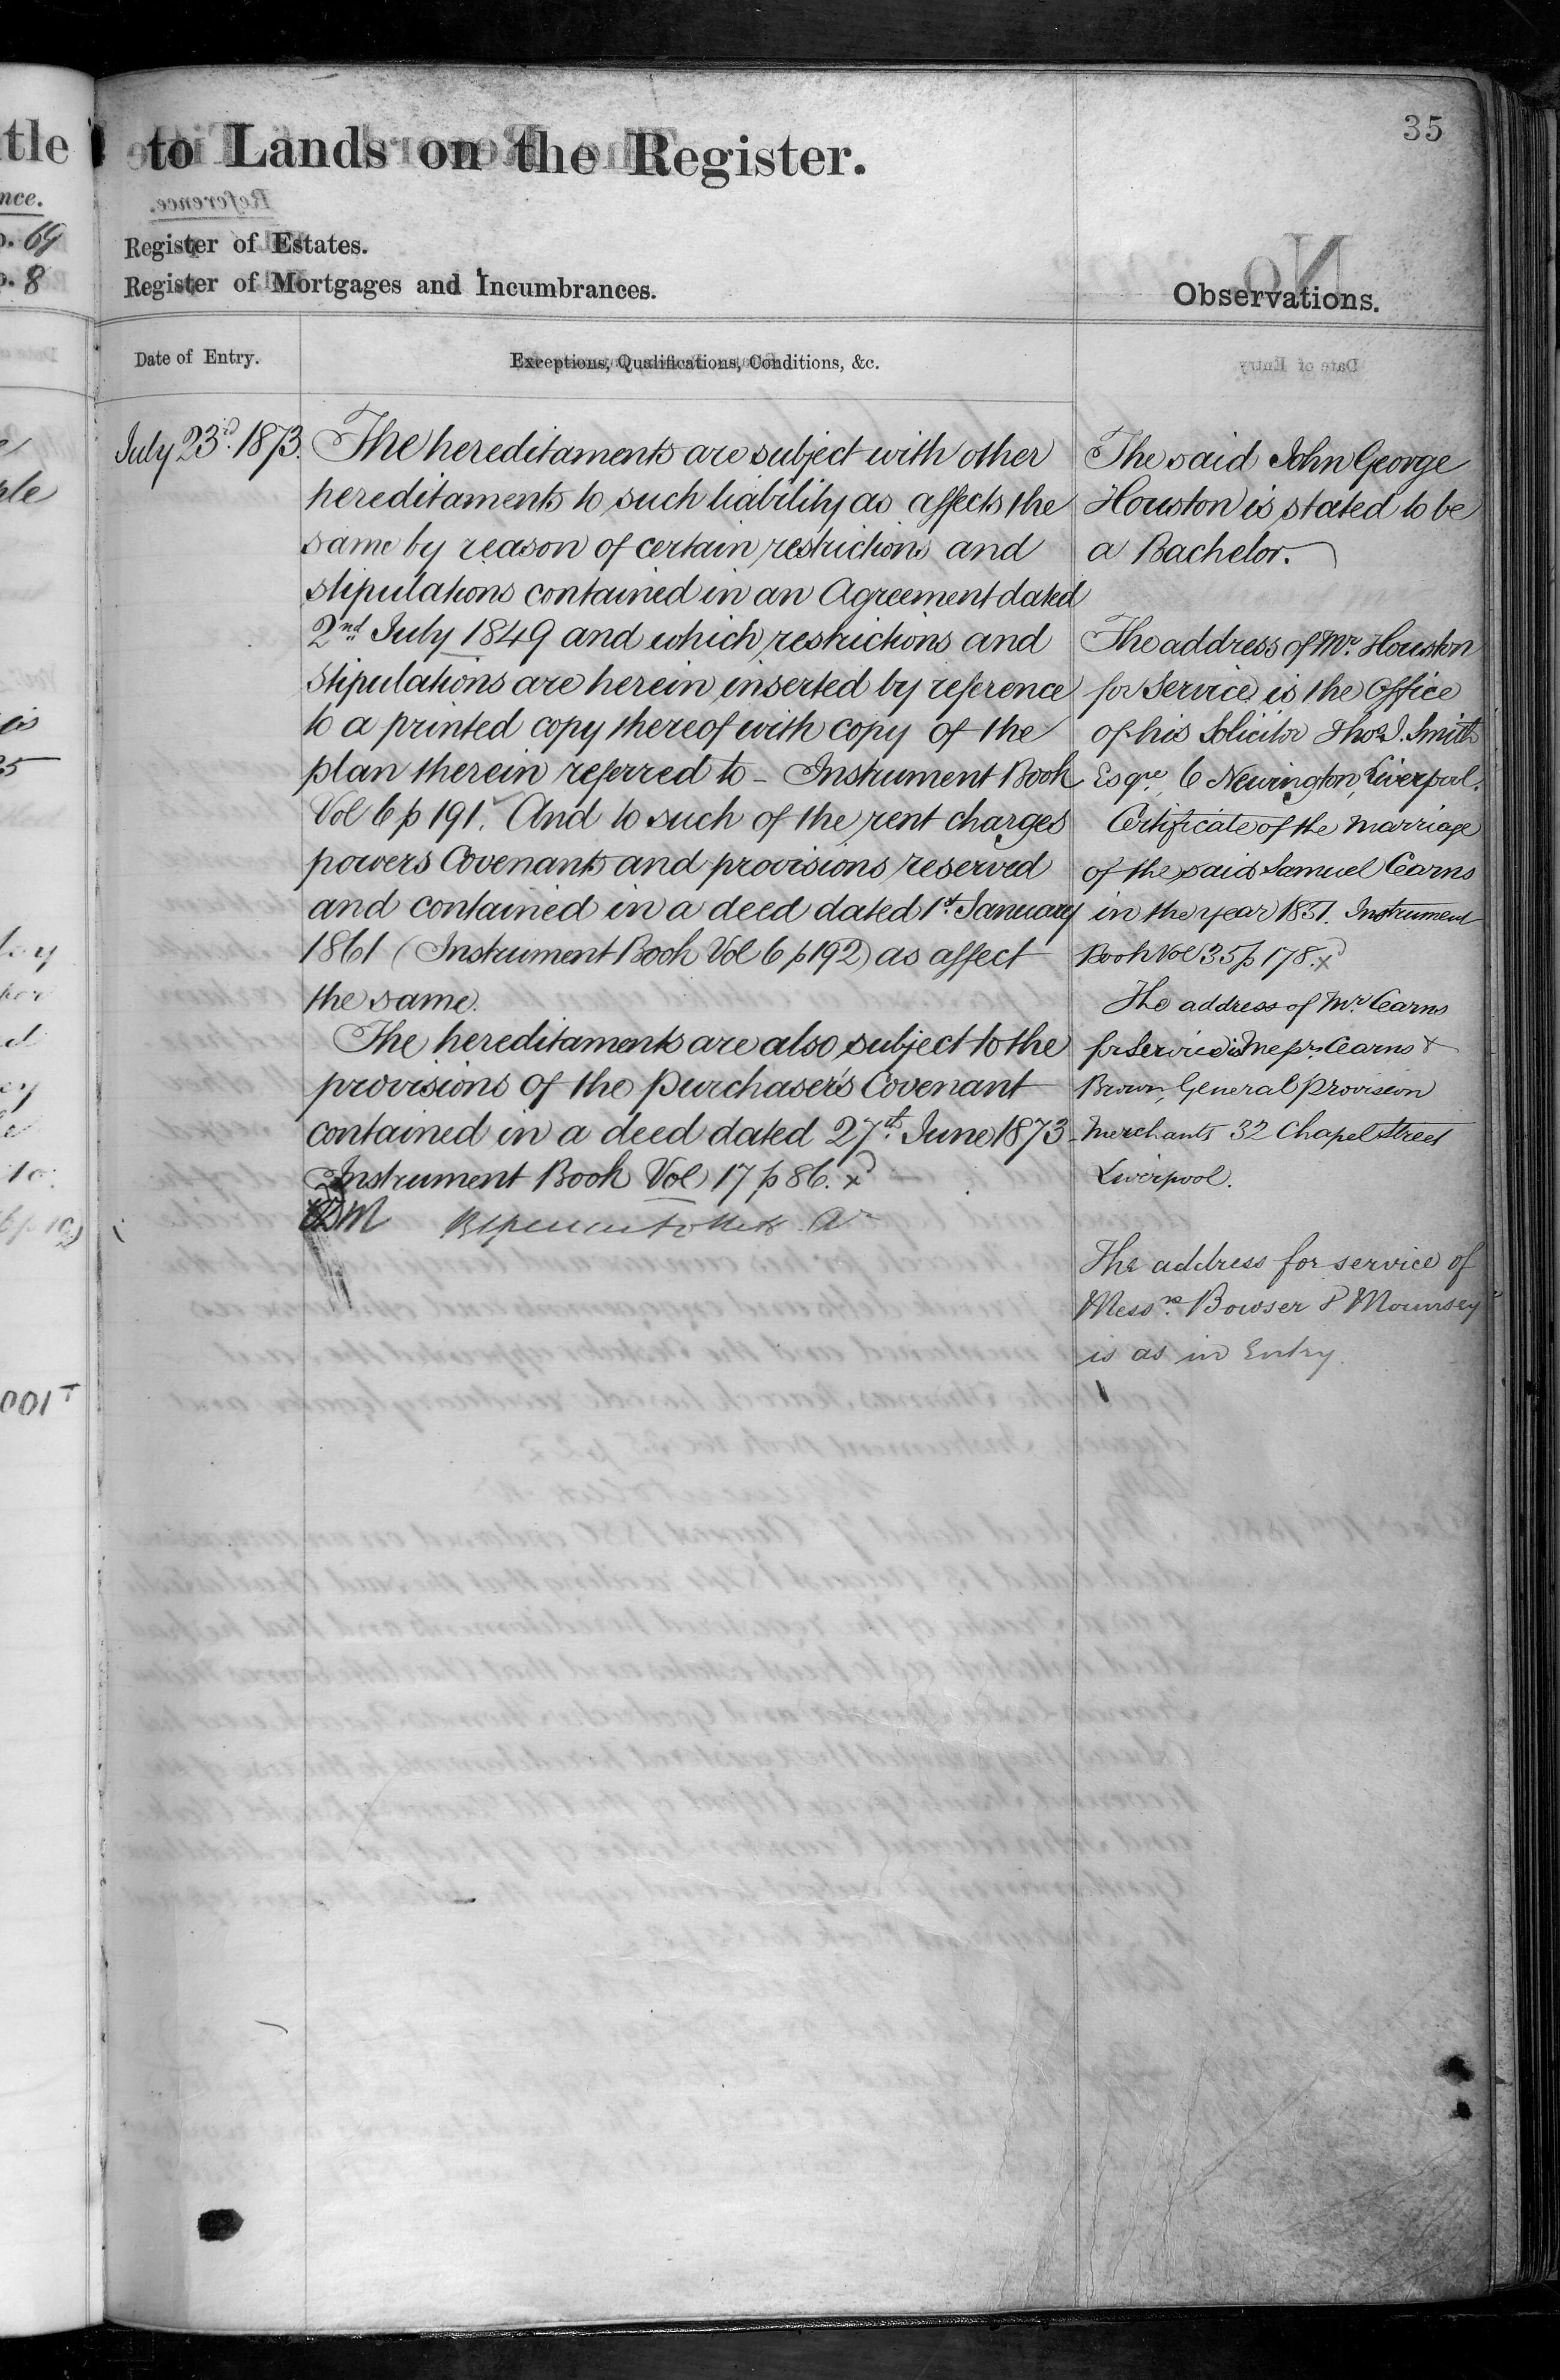 35
to Lands on the Register.
Register of Estates.
Register of Mortgages and Incumbrances.
Observations.
Date of Entry.
Exceptions, Qualifications, Conditions, &c.
July 23rd. 1873.
The hereditaments are subject with other
hereditaments to such liability as affects the
same by reason of certain restrictions and
stipulations contained in an Agreement dated
2nd July 1849 and which restrictions and
Stipulations are herein inserted by reference
to a printed copy thereof with copy of the
plan therein referred to - Instrument Book
Vol 6 p 191. And to such of the rent charges
powers Covenants and provisions reserved
and contained in a deed dated 1st January
1861 (Instrument Book Vol 6 p 192) as affect
the same.
The hereditaments are also subject to the
provisions of the purchaser's Covenant
contained in a deed dated 27th. June 1873
Instrument Book Vol 17 p 86. x
The said John George
Houston is stated to be
a Bachelor.
The address of Mr. Houston
for Service is the Office
of his Solicitor Thos. J. Smith
Esqre, 6 Newington, Liverpool.
Certificate of the marriage
of the said Samuel Cearns
in the year 1851. Instrument
Book Vol 35 p 178. x
The address of Mr. Cearns
for Service is Messrs. Cearns &
Brown, General Provision
Merchants 32 Chapel Street
Liverpool.
The address for service of
Messrs. Bowser & Mounsey
is as in Entry
tle
nce.
p. 69
p. 8